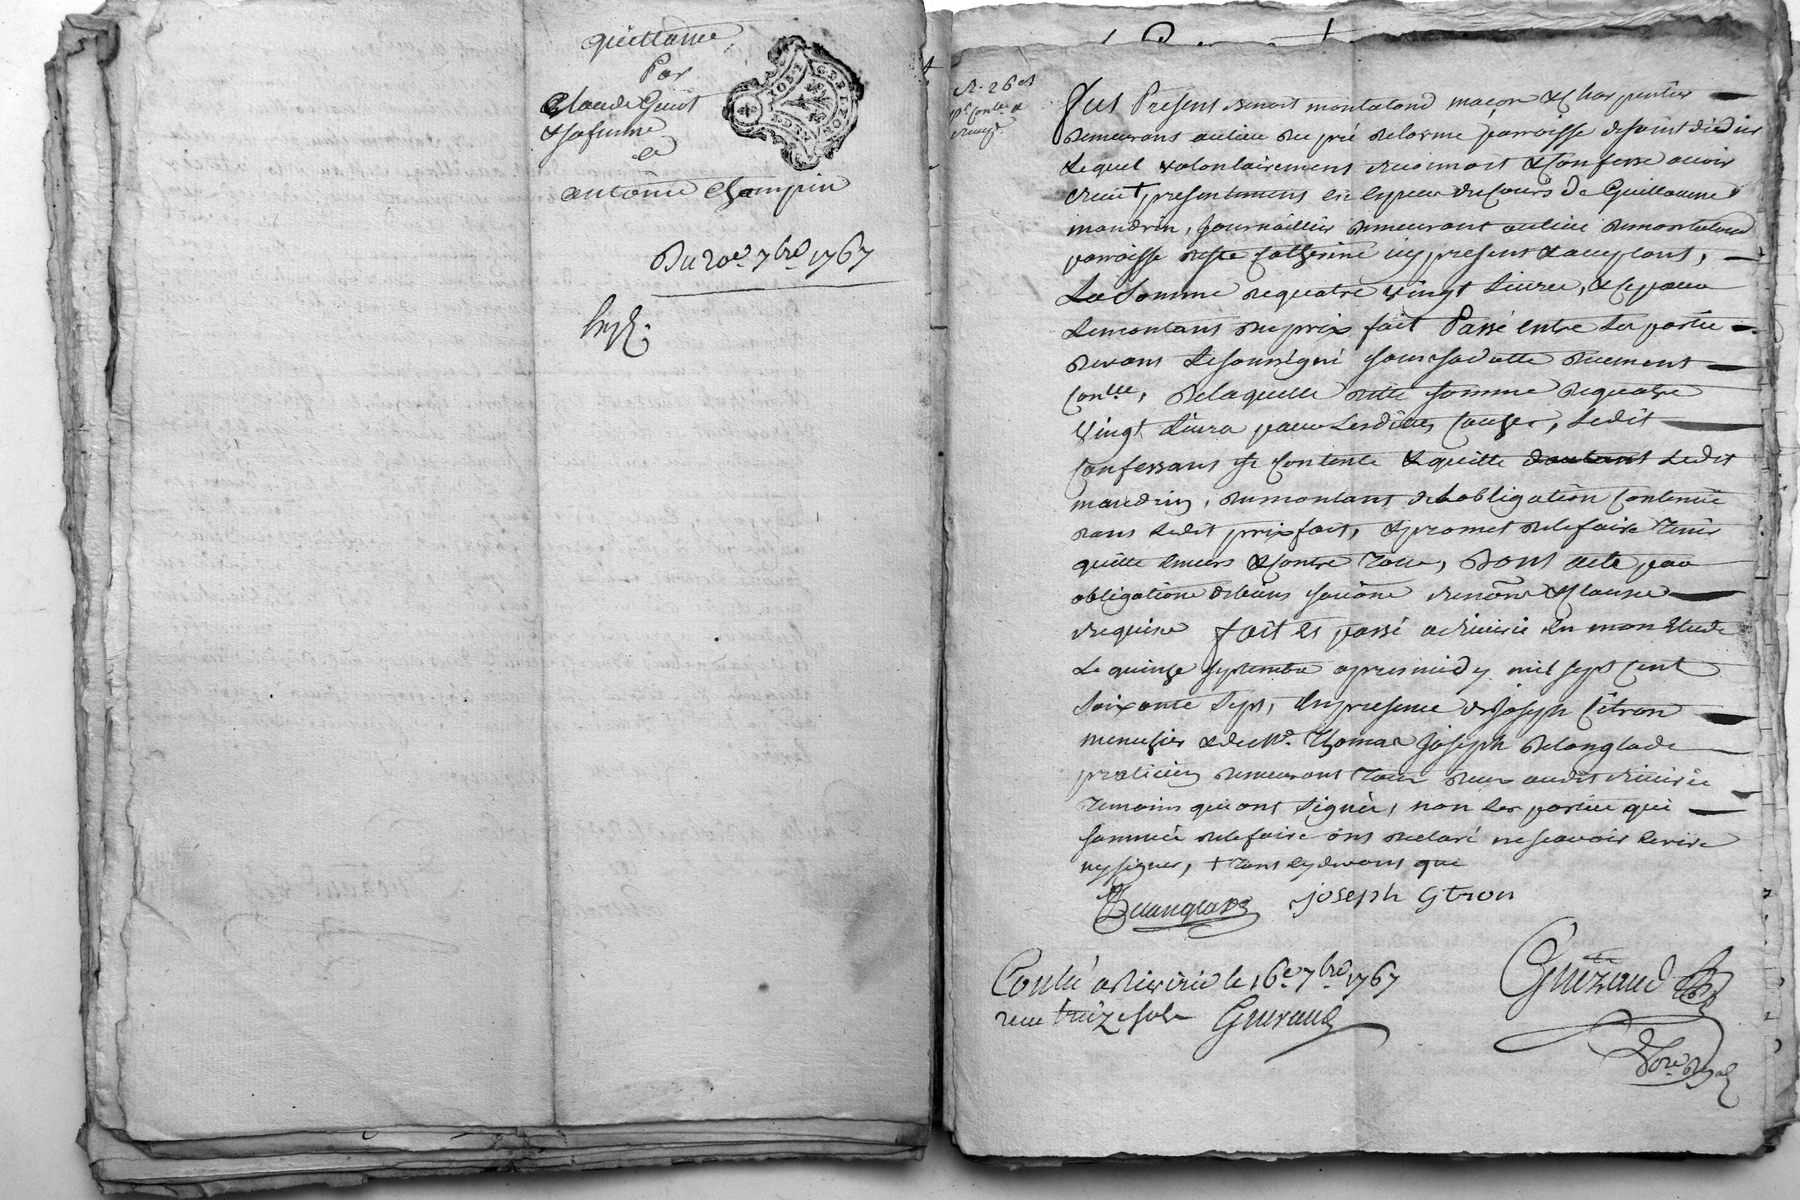 quittance
Par
Claude Guiot
& sa femme
a
antoine Champin
Du 20e 7bre 1767
GEN LYON
R. 26 s
pr Conlle &
Fut Present Benoit montaland maçon & Charpentier
demeurant au lieu du pré delorme parroisse de saint didier
Lequel volontairement reconnoit & Confesse avoir
receut + presentement en espece du Cours de Guillaume
mandrin, Journaillier demeurant au lieu de montaland
parroisse de ste Catherine icy present & aceptant,
La Somme de quatre vingt Livres, & ce pour
Le montant du prix fait Passé entre Les parties
devant Le soussigné sous sa datte duement
Conllé, De laquelle ditte somme de quatre
vingt Livres pour Lesdittes Causes, Ledit
Confessant se Contente & quitte Ledit
mandrin, du montant de L obligation Contenüe
dans Ledit prix fait, & promet de le faire Tenir
quitte Envers & Contre Tous, Dont acte par
obligations de biens soumons renons & Clauses
requises fait et passé a riverie En mon Etude
Le quinze septembre apres midy mil sept Cent
soixante sept, En presence de Joseph Citron
menusier & de Mr. Thomas Joseph Delanglade
praticien demeurans Tous deux audit riverie
Temoins qui ont signé, non Les parties qui
sommées de le faire ont declaré ne scavoir Ecrire
ny signer, + Tans cy devant que
Delanglade Joseph Citron
Conllé a Riverie le 16e 7bre 1767
reçu treize sols Guerraud
Guerraud
Nore Royal